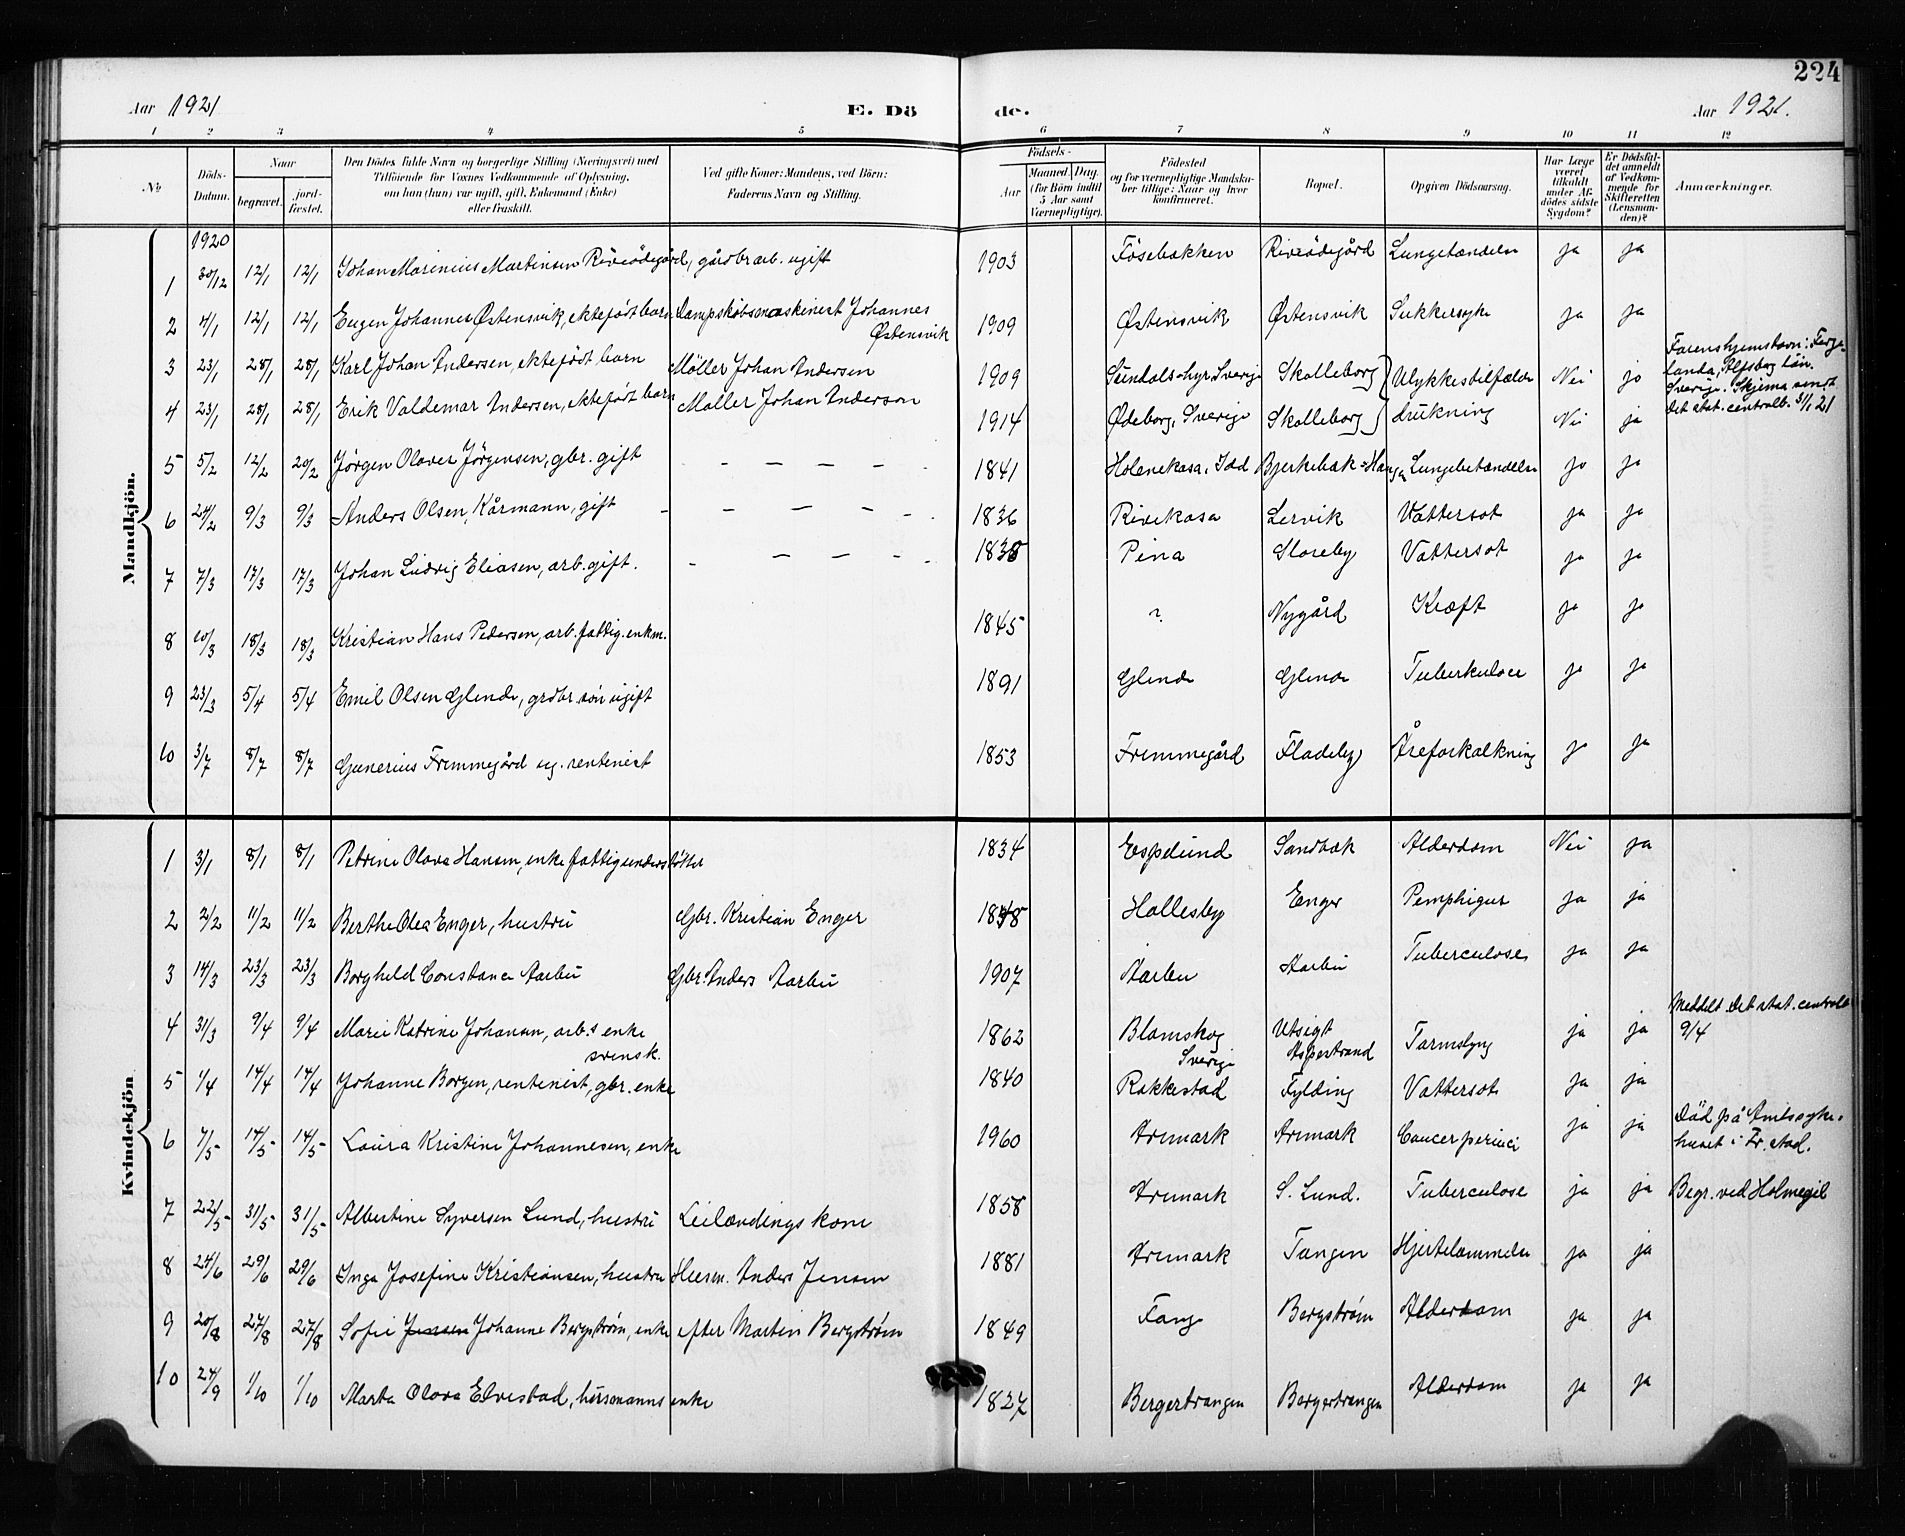 224
Aar 1921 E. Dö de. Aar 1921.
1 2 3 4 5 6 7 8 9 10 11 12
No. Döds-Datum. Naar begravet. jord-fæstet. Den Dödes fulde Navn og borgerlige Stilling (Næringsvei) med Tilföiende for Voxnes Vedkommende af Oplysning, om han (hun) var ugift, gift, Enkemand (Enke) eller fraskilt. Ved gifte Koner: Mandens, ved Börn: Faderens Navn og Stilling. Födsels- Aar Maaned. Dag. (for Börn indtil 5 Aar samt Værnepligtige). Födested og for værnepligtige Mandskaber tillige: Naar og hvor konfirmeret. Bopæl. Opgiven Dödsaarsag. Har Læge været tilkaldt under Afdödes sidste Sygdom? Er Dödsfaldet anmeldt af Vedkommende for Skifteretten (Lensmanden)? Anmærkninger.
Mandkjön.
1920
1 30/12 12/1 12/1 Johan Marinius Martinsen Riveödegård, gårdbrarb. ugift 1903 Fösebakken Riveödegård Lungebetændelse ja ja
2 4/1 12/1 12/1 Eugen Johannes Østensvik, ektefödt barn Dampskibsmaskinist Johannes Østensvik 1909 Østensvik Østensvik Sukkersyke ja ja
3 23/1 28/1 28/1 Karl Johan Andersen, ektefödt barn Möller Johan Andersen 1909 Sundals-hyr. Sverige Skolleborg Ulykkestilfælde Nei ja Farens hjemstavn: Fergelanda, Elfsborg län. Sverige. Skjema sendt det stat. centralb. 31/1 21
4 23/1 28/1 28/1 Erik Valdemar Andersen, ektefödt barn Möller Johan Anderson 1914 Ødeborg, Sverige Skolleborg drukning Nei ja
5 5/2 12/2 20/2 Jörgen Olaves Jörgensen, gbr. gift — — — — — 1841 Holenekasa, Idd Bjerkebæk-Hauga Lungebetændelse ja ja
6 24/2 9/3 9/3 Anders Olsen, Kårmann, gift — — — — 1836 Rivekasa Lervik Vattersot ja ja
7 7/3 17/3 17/3 Johan Ludvig Eliasen, arb. gift. — — — — 1838 Pina Storeby Vattersot ja ja
8 10/3 18/3 18/3 Kristian Hans Pedersen, arb. fattig. enkm. 1845 ? Nygård Kræft ja ja
9 23/3 5/4 5/4 Emil Olsen Glende, grdbr. sön ugift 1891 Glende Glende Tuberkulose ja ja
10 3/7 8/7 8/7 Gunerius Frimmegård ug. rentenist 1853 Frimmegård Fladeby Åreforkalkning ja ja
Kvindekjön
1 3/1 8/1 8/1 Petrine Olava Hansen, enke fattigunderstöttet 1834 Espelund Sandbæk Alderdom Nei ja
2 2/2 11/2 11/2 Berthe Olea Enger, hustru Gbr. Kristian Enger 1848 Hallesby Enger Pemphigus ja ja
3 14/3 23/3 23/3 Borghild Constance Aarbu Gbr. Anders Aarbu 1907 Aarbu Aarbu Tuberculose ja ja
4 31/3 9/4 9/4 Marie Katrine Johansen, arb.s enke svensk. 1862 Blomskog Sverige Utsigt Aspestrand Tarmslyng ja ja Meddelt det stat. centralb 9/4
5 1/4 14/4 14/4 Johanne Borgen, rentenist, gbr. enke 1840 Rakkestad Fylding Vattersot ja ja
6 7/5 14/5 14/5 Laura Kristine Johannesen, enke 1960 Aremark Aremark Cancer perinei ja ja Död på Amtssykehuset i Fr.stad.
7 22/5 31/5 31/5 Albertine Syversen Lund, hustru Leilændings kone 1858 Aremark S. Lund. Tuberculose ja ja Begr. ved Holmegil
8 24/6 29/6 29/6 Inga Josefine Kristiansen, hustru Husm. Anders Jensen 1881 Aremark Tangen Hjertelammelse ja ja
9 20/8 27/8 27/8 Sofie Jensen Johanne Bergström, enke efter Martin Bergström 1849 Fange Bergström Alderdom ja ja
10 24/9 1/10 1/10 Marta Olava Elvestad, husmanns enke 1827 Bergertrangen Bergertrangen Alderdom ja ja